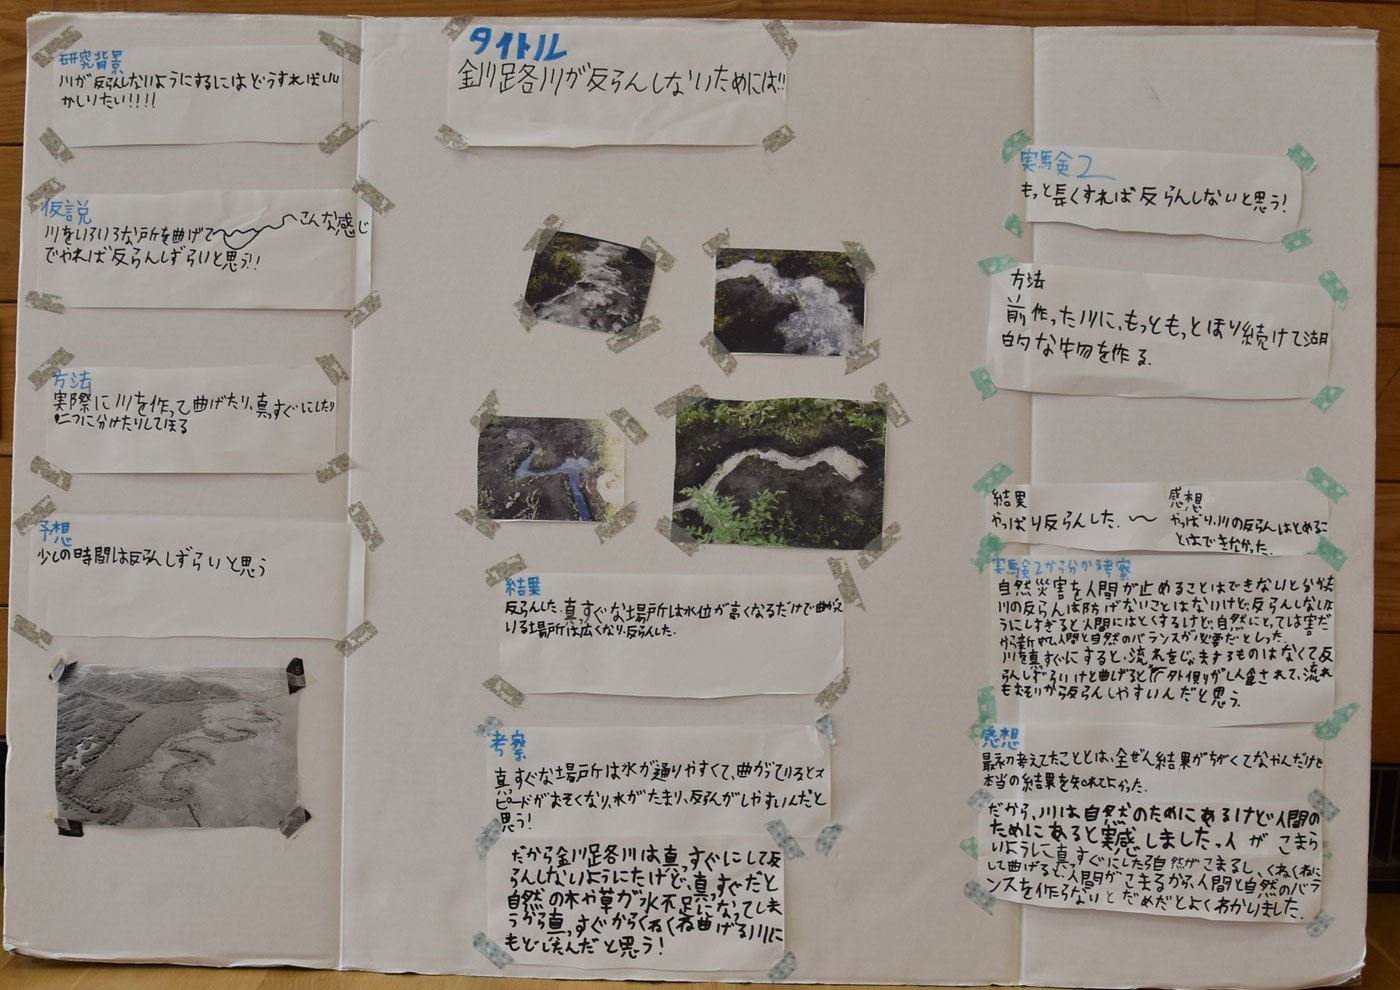 研究背景
川が反らんしないようにするにはどうすればいい
かしりたい!!!!
仮説
川をいろいろな戸所を曲げて 〜こんな感じ
でやれば反らんしずらいと思う!!
方法
実際に川を作って曲げたり、真っすぐにしたり
二つに分けたりしてほる
予想
少しの時間は反らんしずらいと思う
タイトル
釧路川が反らんしないためには!!
結果
反らんした。真っすぐな場所は水位が高くなるだけで曲がって
いる場所は広くなり、反らんした。
考察
真っすぐな場所は水が通りやすくて、曲がっているとス
ピードがおそくなり、水がたまり、反らんがしやすいんだと
思う!
だから釧路川は真っすぐにして反
らんしないようにたけど、真っすぐだと
自然の木や草が水不足になってしま
うから真っすぐからくねくね曲げる川に
もどしたんだと思う!
実験2
もっと長くすれば反らんしないと思う!
方法
前作った川に、もっともっとほり続けて湖
的な生物を作る。
結果
やっぱり反らんした。〜
感想
やっぱり、川の反らんはとめるこ
とはできなかった。
実験2から分かる考察
自然災害を人間が止めることはできないと分かった
川の反らんは防げないことはないけど、反らんしないよ
うにしすぎると人間にはとくするけど、自然にとっては害だ
から人間と自然のバランスが必要だとしった。
川を真っすぐにすると、流れをじゃまするものはなくて反
らんしずらいけど曲げると外側がしん食されて、流れ
もおそいから反らんしやすいんだと思う。
感想
最初考えてたこととは、全ぜん結果がちがくてなやんだけど
本当の結果を知れてよかった。
だから、川は自然のためにあるけど人間の
ためにあると実感しました。人がこまら
いようにに真っすぐにしたら自然がこまるし、くねくねに
して曲げると、人間がこまるから、人間と自然のバラ
ンスを作らないとだめだとよくわかりました。